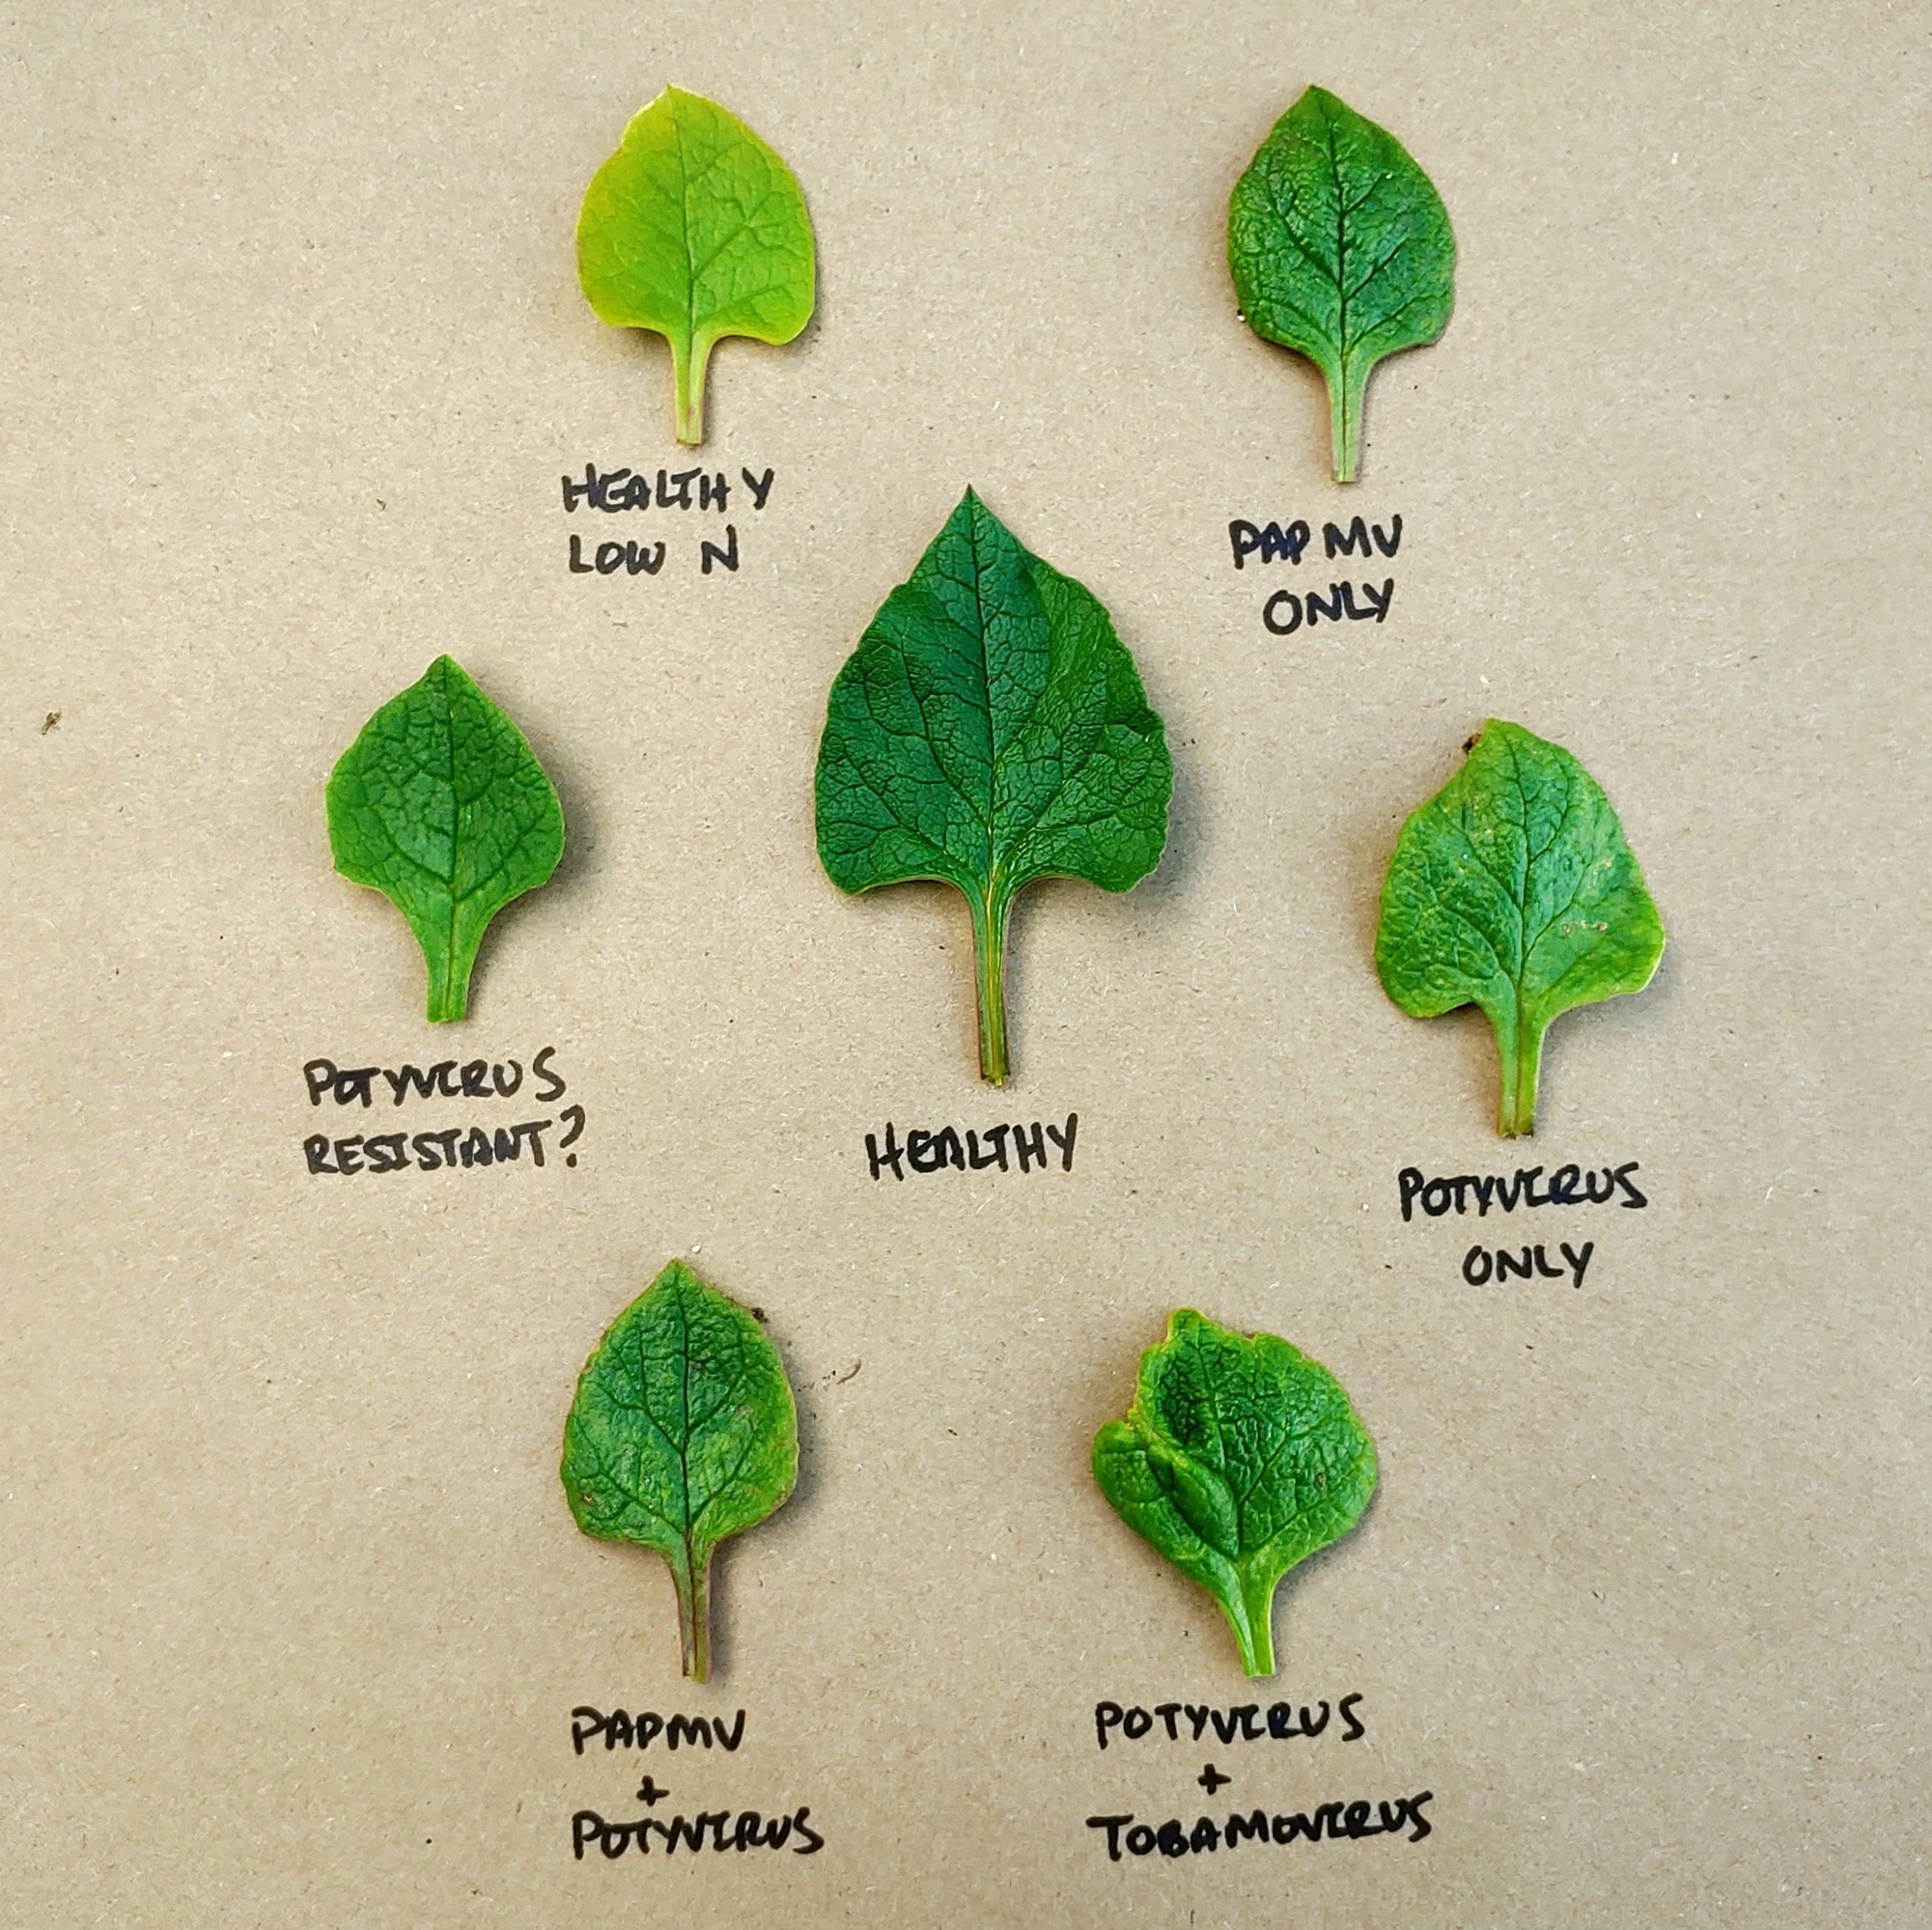 HEALTHY
LOW N
PAPMV
ONLY
POTYVIRUS
RESISTANT?
HEALTHY
POTYVIRUS
ONLY
PAPMV
+
POTYVIRUS
POTYVIRUS
+
TOBAMOVIRUS